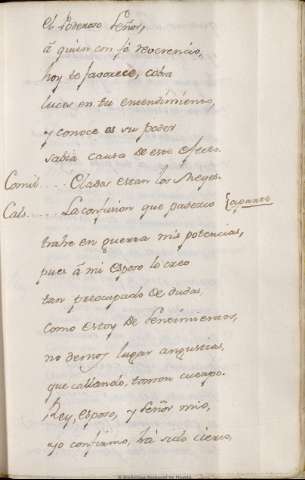 el Poderoso Señor,
á quien con fé reverencio,
hoy te favorece, cobra
luces en tu entendimiento,
y conoce es su poder
sabia causa de este efecto.
Comit.... Elados estan los Reyes.
Cals..... La confusion que padezco {aparte
trahe en guerra mis potencias,
pues á mi Esposo le creo
tan preocupado de dudas,
como estoy de sentimientos,
no demos lugar angustias,
que callando, tomen cuerpo.
Rey, Esposo, y Señor mio,
yo confirmo, há sido cierto,